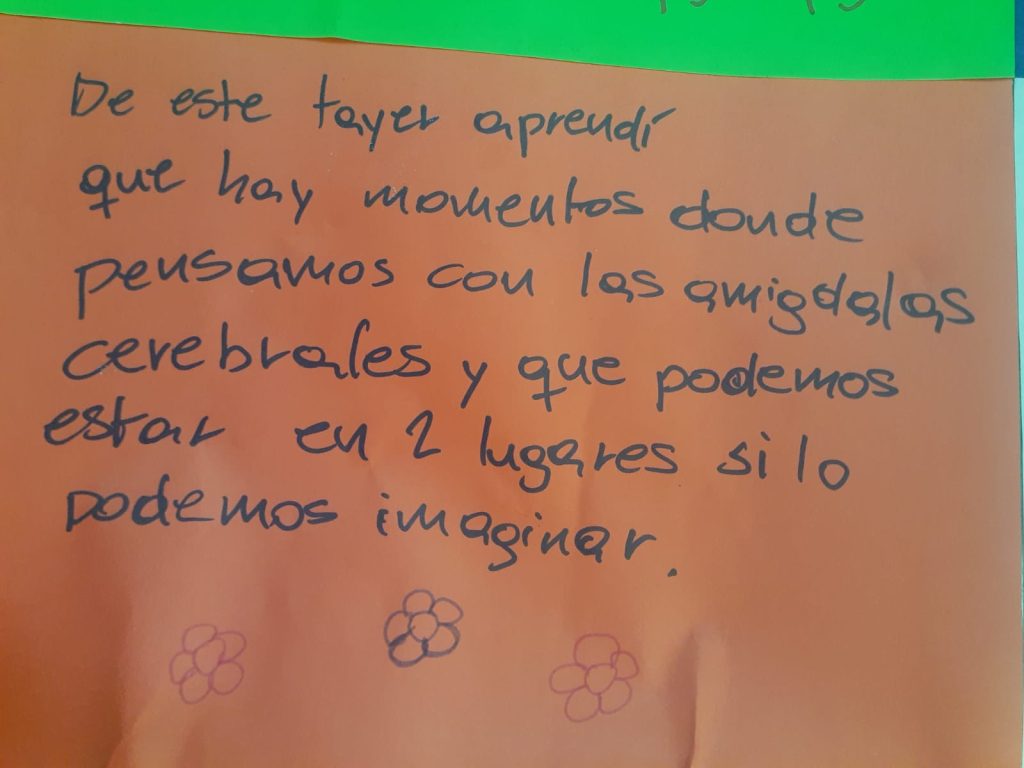 De este tayer aprendí
que hay momentos donde
pensamos con las amigdalas
cerebrales y que podemos
estar en 2 lugares si lo
podemos imaginar.